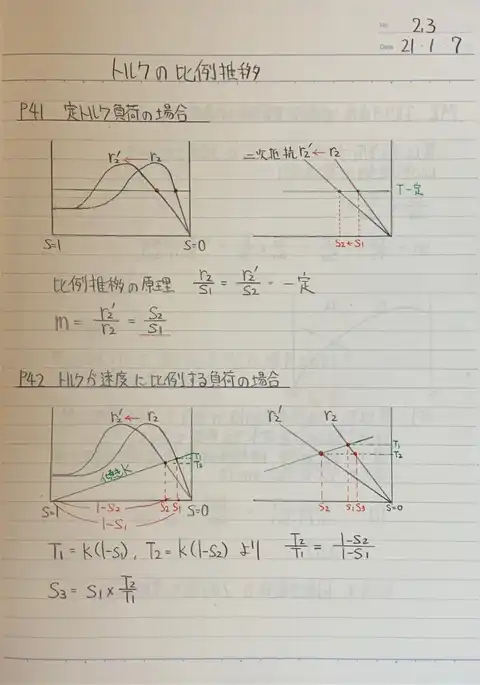 No. 2,3
Date 21・1 7
トルクの比例推移
P41 定トルク負荷の場合
r2'←r2
S=1 S=0
二次抵抗r2'←r2
T一定
S2←S1
比例推移の原理 r2/S1 = r2'/S2 = 一定
m = r2'/r2 = S2/S1
P42 トルクが速度に比例する負荷の場合
r2'←r2
傾きK
T1
T2
S2 S1
S=1 1-S2 S=0
1-S1
r2' r2
T1
T2
S2 S1 S3
S=0
T1 = K(1-S1), T2 = K(1-S2) より T2/T1 = 1-S2/1-S1
S3 = S1 × T2/T1